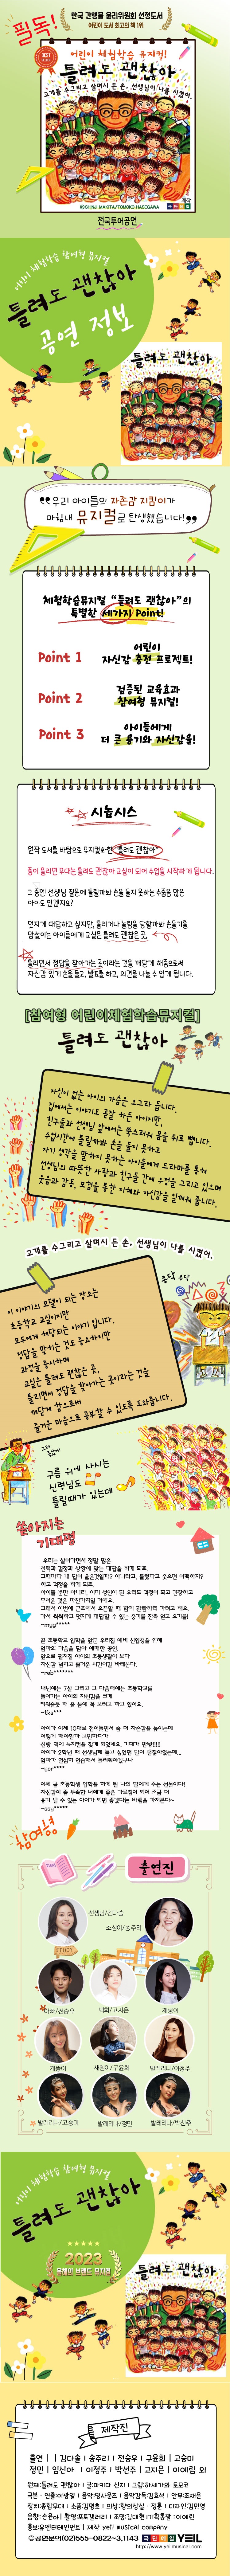 필독!
한국 간행물 윤리위원회 선정도서
어린이 도서 최고의 책 1위
어린이 체험학습 뮤지컬!
틀려도 괜찮아
고개를 수그리고 살며시 든 손, 선생님이 나를 시켰어.
©SHINJI MAKITA/TOMOKO HASEGAWA
제작
전국투어공연
어린이 체험학습 참여형 뮤지컬
틀려도 괜찮아
공연 정보
틀려도 괜찮아
우리 아이들의 자존감 지킴이가
마침내 뮤지컬로 탄생했습니다!
체험학습뮤지컬 “틀려도 괜찮아”의
특별한 세가지 Point!
Point 1
어린이
자신감 충전 프로젝트!
Point 2
검증된 교육효과
참여형 뮤지컬!
Point 3
아이들에게
더 큰 용기와 자신감을!
시놉시스
원작 도서를 바탕으로 뮤지컬화한 틀려도 괜찮아
종이 울리면 무대는 틀려도 괜찮아 교실이 되어 수업을 시작하게 됩니다.
그 동안 선생님 질문에 틀릴까봐 손을 들지 못하는 수줍음 많은
아이도 있겠지요?
멋지게 대답하고 싶지만, 틀리거나 놀림을 당할까봐 손들기를
망설이는 아이들에게 교실은 틀려도 괜찮은 곳,
틀리면서 정답을 찾아가는 곳이라는 것을 깨닫게 해줌으로써
자신감 있게 손을 들고, 발표를 하고, 의견을 나눌 수 있게 됩니다.
[참여형 어린이체험학습뮤지컬]
틀려도 괜찮아
자신이 없는 아이의 가슴은 오그라 듭니다.
집에서는 이야기도 곧잘 하는 아이지만,
친구들과 선생님 앞에서는 쑥스러워 몸을 뒤로 뺍니다.
수업시간에 틀릴까봐 손을 들지 못하고
자기 생각을 말하지 못하는 아이들에게 드라마를 통해
선생님의 따뜻한 사랑과 친구들 간에 우정을 그리고 있으며
웃음과 감동, 모험을 통한 지혜와 자신감을 일깨워 줍니다.
고개를 수그리고 살며시 든 손, 선생님이 나를 시켰어.
이 이야기의 모델이 되는 장소는
초등학교 교실이지만
모두에게 해당되는 이야기 입니다.
정답을 맞히는 것도 중요하지만
과정을 중시하며
교실은 틀려도 괜찮은 곳,
틀리면서 정답을 찾아가는 곳이라는 것을
깨닫게 함으로써
즐거운 마음으로 공부할 수 있도록 도와줍니다.
구름 위에 사시는
신령님도
틀릴때가 있는데
쏟아지는
기대평
우리는 살아가면서 정말 많은
선택과 결정의 상황에 맞는 대답을 하게 되죠.
그때마다 내 답이 옳은걸일까? 아니라고, 틀렸다고 웃으면 어떡하지?
하고 걱정을 하게 되죠.
아이들 뿐만 아니라, 이미 성인이 된 우리도 걱정이 되고 긴장하고
무서운 것은 마찬가지일 거예요.
그래서 이번에 군포에서 오픈할 때 함께 관람하러 가려고 해요.
가서 씩씩하고 멋지게 대답할 수 있는 용기를 잔뜩 얻고 오기를!
곧 초등학교 입학을 앞둔 우리집 예비 신입생을 위해
엄마의 마음을 담아 예매한 공연.
앞으로 펼쳐질 아이의 초등생활이 보다
자신감 넘치고 즐거운 시간이길 바래본다.
내년에는 7살 그리고 그 다음해에는 초등학교를
들어가는 아이의 자신감을 크게
키워줄듯 해 올 봄에 꼭 보려고 하고 있어요.
아이가 이제 10대로 접어들면서 좀 더 자존감을 높이는데
어떻게 해야할까 고민하다가
신랑 덕에 뮤지컬을 찾게 되었네요. 기대가 만땅!!!!!
이제 곧 초등학생 입학을 하게 될 나의 딸에게 주는 선물이다!
참여형
출연진
선생님/김다솔
소심이/송주리
아빠/전승우
백희/고지은
개똥이
새침이/구윤희
발레리나/이정주
발레리나/고승미
발레리나/정민
발레리나/박선주
어린이 체험학습 참여형 뮤지컬
틀려도 괜찮아
2023
올해의 브랜드 뮤지컬
틀려도 괜찮아
제작진
출연 ㅣ 김다솔 ㅣ 송주리 ㅣ 전승우 ㅣ 구윤희 ㅣ 고승미
정민 ㅣ 임신아 ㅣ 이정주 ㅣ 박선주 ㅣ 고지은 ㅣ 이예림 외
원제:틀려도 괜찮아 ㅣ 글:마키다 신지 ㅣ 그림:하세가와 토모코
홍보:유앤아이엔터테인먼트 ㅣ 제작 yeil musical company
◎공연문의(02)555-0822~3,1143 극단예일 YEIL
http://www.yeilmusical.com